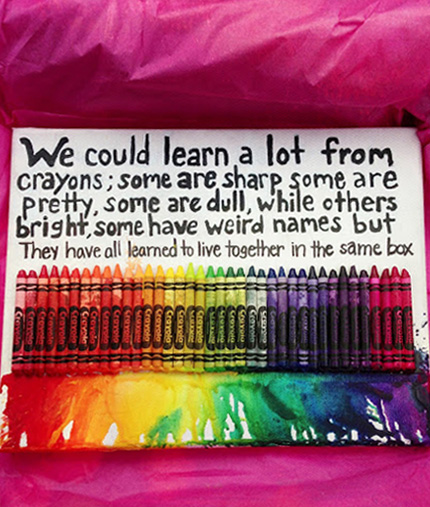 We could learn a lot from
crayons; some are sharp some are
pretty, some are dull, while others
bright, some have weird names but
They have all learned to live together in the same box